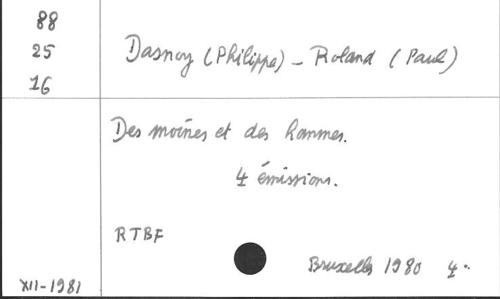 88
25
16
Dasnoy (Philippe) - Roland (Paul)
Des moines et des hommes.
4 émissions.
RTBF
Bruxelles 1980 4°
XII-1981